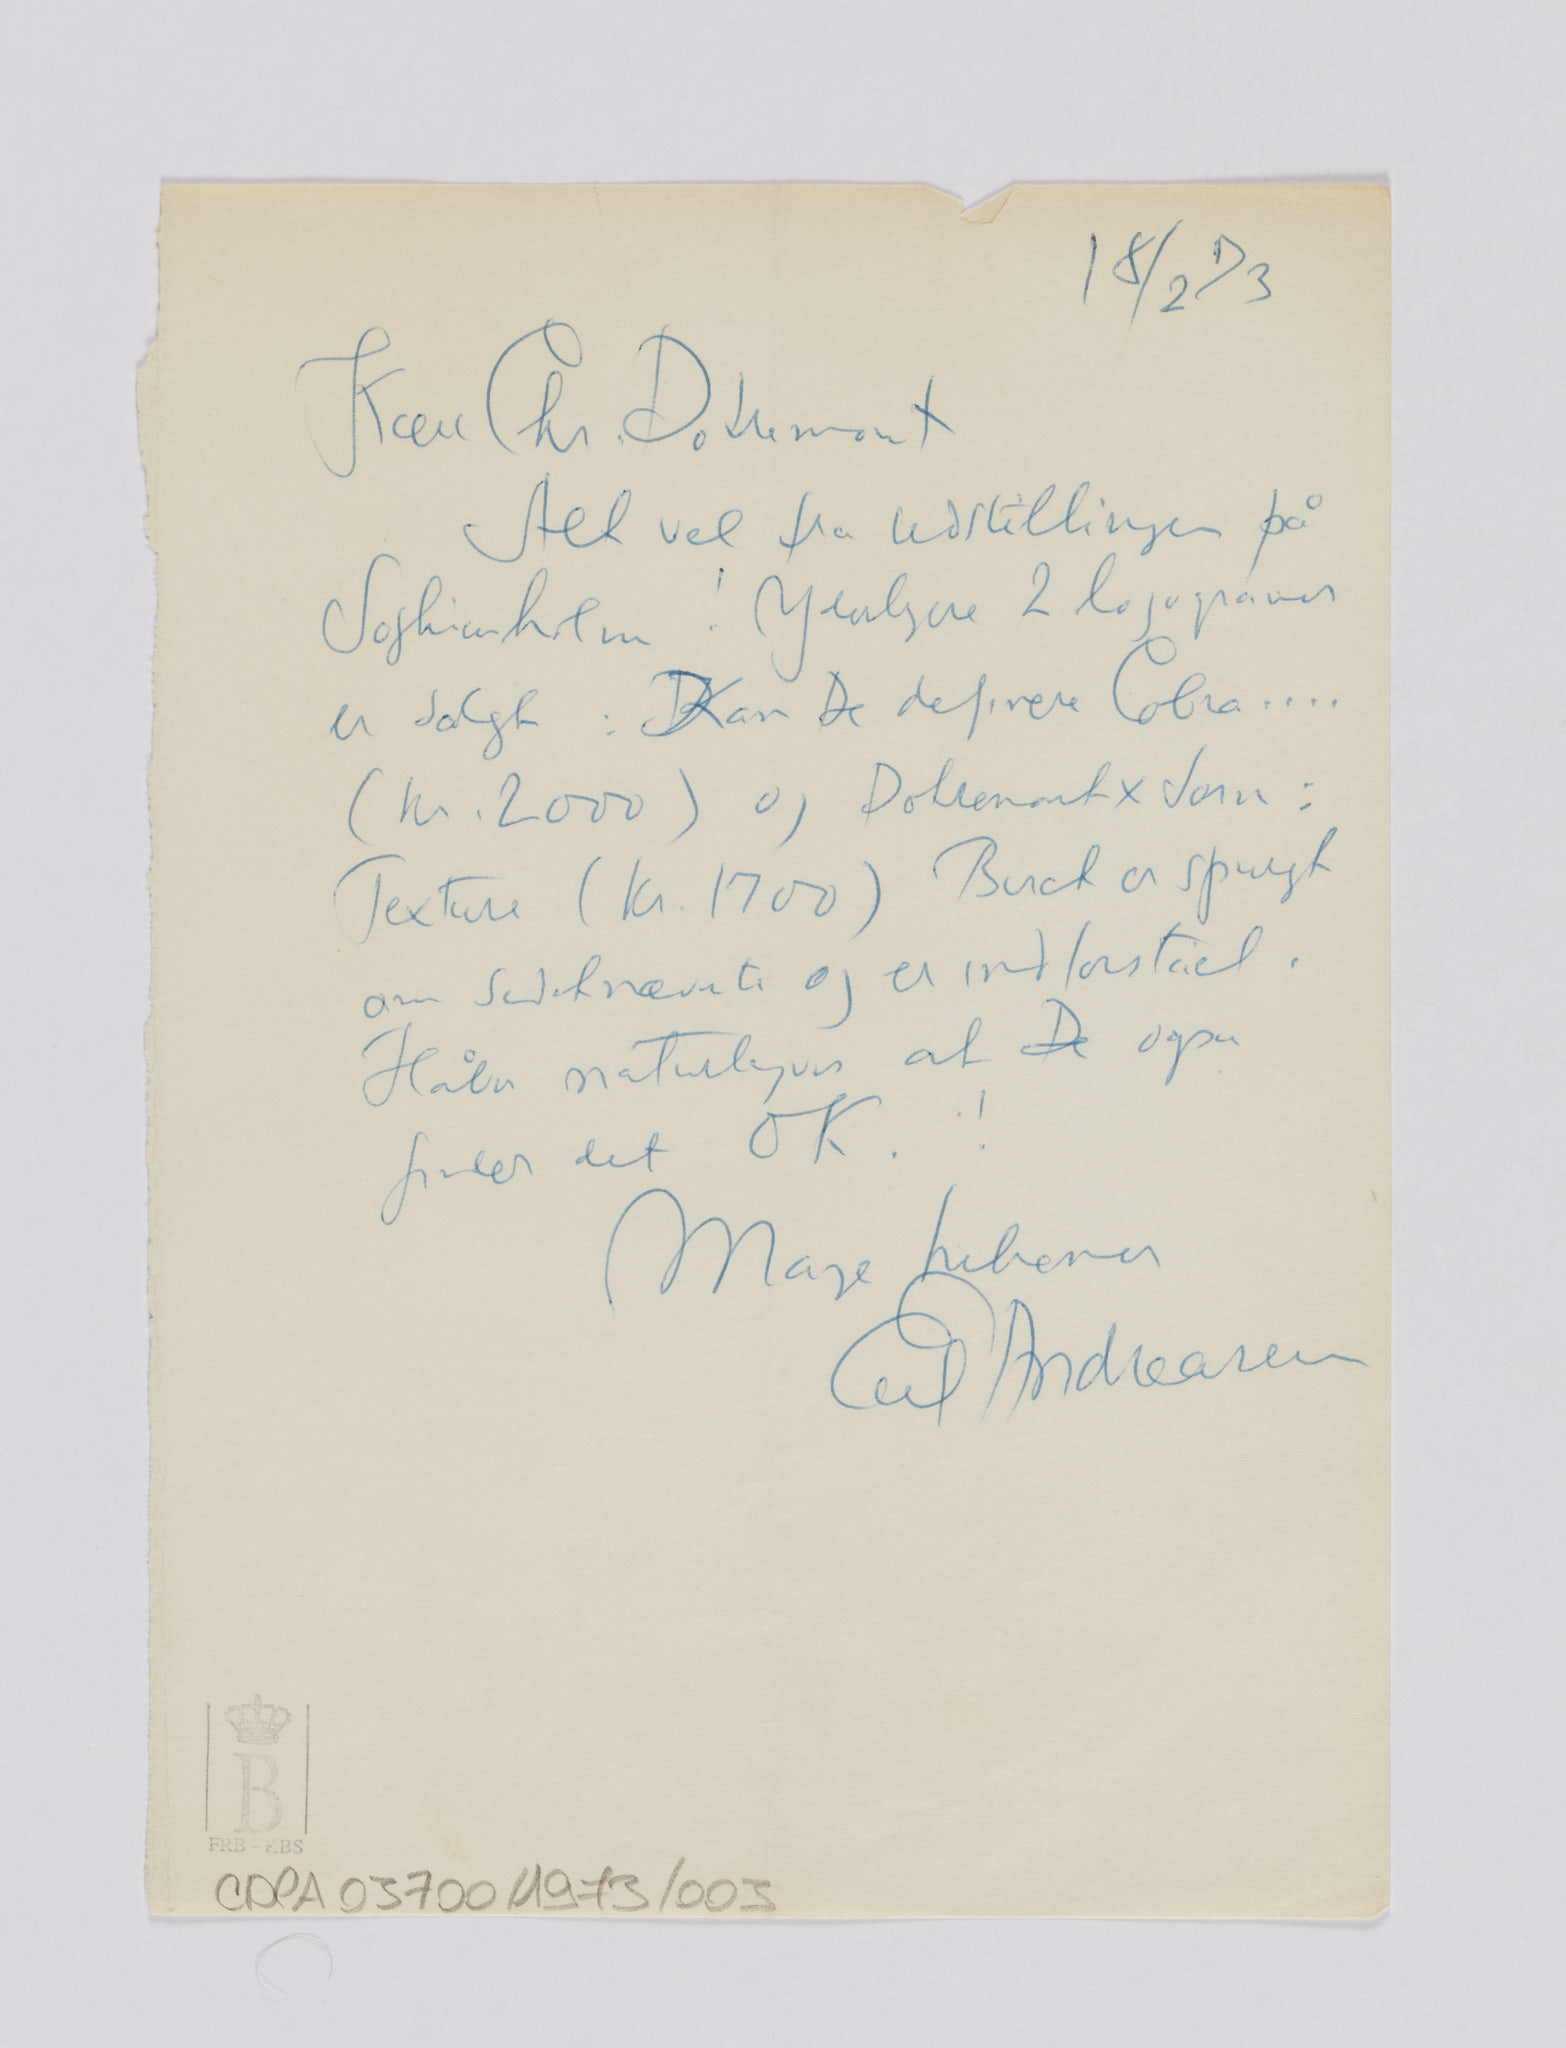 18/2 73
Kære Chr. Dotremont
Alt vel fra udstillingen på
Sophienholm ! Yderligere 2 logogramer
er solgt : Kan De definere Cobra....
(kr. 2000) og Dotremont x Jorn :
Texture (kr. 1700) Birch er spurgt
om sidstnævnte og er indforstået.
Håber naturligvis at De også
finder det OK. !
Mange hilsener
Andreasen
B
FRB - KBS
CDPA 03700/1973/003